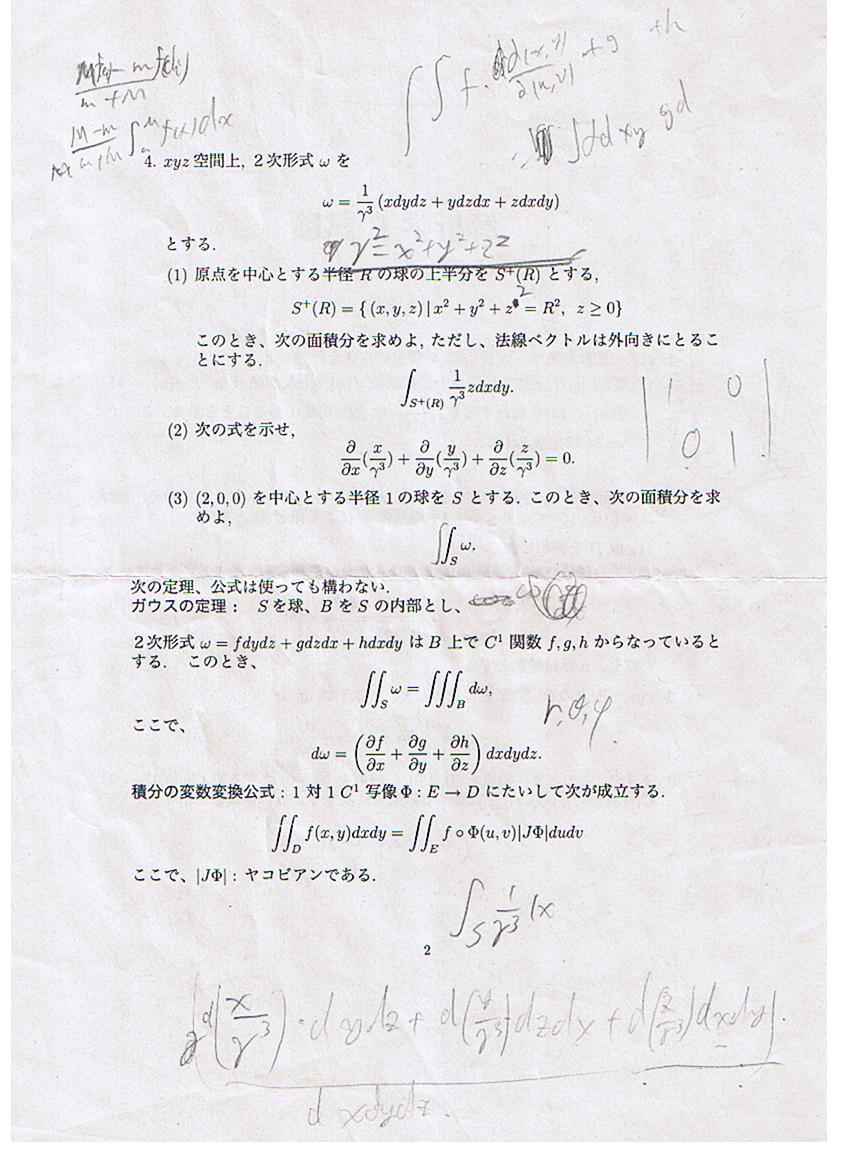 ∫∫ f·
4. xyz 空間上, 2次形式 ω を
ω = 1/γ³ (xdydz + ydzdx + zdxdy)
とする.
γ² = x² + y² + z²
(1) 原点を中心とする半径 R の球の上半分を S⁺(R) とする,
S⁺(R) = { (x, y, z) | x² + y² + z² = R², z ≥ 0}
このとき、次の面積分を求めよ, ただし、法線ベクトルは外向きにとるこ
とにする.
∫_{S⁺(R)} 1/γ³ zdxdy.
| 1 0 |
| 0 1 |
(2) 次の式を示せ,
∂/∂x(x/γ³) + ∂/∂y(y/γ³) + ∂/∂z(z/γ³) = 0.
(3) (2,0,0) を中心とする半径 1 の球を S とする. このとき、次の面積分を求
めよ,
∬_S ω.
次の定理、公式は使っても構わない.
ガウスの定理： S を球、B を S の内部とし、
2次形式 ω = fdydz + gdzdx + hdxdy は B 上で C¹ 関数 f, g, h からなっていると
する. このとき、
∬_S ω = ∭_B dω,
r, θ, φ
ここで、
dω = (∂f/∂x + ∂g/∂y + ∂h/∂z) dxdydz.
積分の変数変換公式：1 対 1 C¹ 写像 Φ : E → D にたいして次が成立する.
∬_D f(x, y)dxdy = ∬_E f ∘ Φ(u, v)|JΦ|dudv
ここで、|JΦ| : ヤコビアンである.
∫_S 1/γ³ dx
2
d(x/γ³)·dydz + d(y/γ³)dzdx + d(z/γ³)dxdy.
dxdydz.